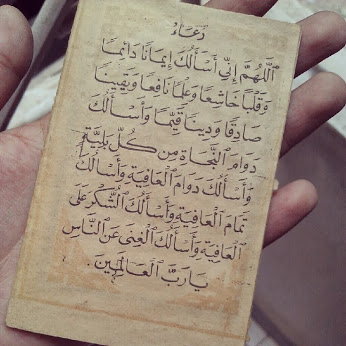 دُعَاءُ
اَللّٰهُمَّ إِنِّي أَسْأَلُكَ إِيمَانًا دَائِمًا
وَقَلْبًا خَاشِعًا وَعِلْمًا نَافِعًا وَيَقِينًا
صَادِقًا وَدِينًا قَيِّمًا وَأَسْأَلُكَ
دَوَامَ النَّجَاةِ مِنْ كُلِّ بَلِيَّةٍ
وَأَسْأَلُكَ دَوَامَ الْعَافِيَةِ وَأَسْأَلُكَ
تَمَامَ الْعَافِيَةِ وَأَسْأَلُكَ الشُّكْرَ عَلَى
الْعَافِيَةِ وَأَسْأَلُكَ الْغِنَى عَنِ النَّاسِ
يَا رَبَّ الْعَالَمِينَ.